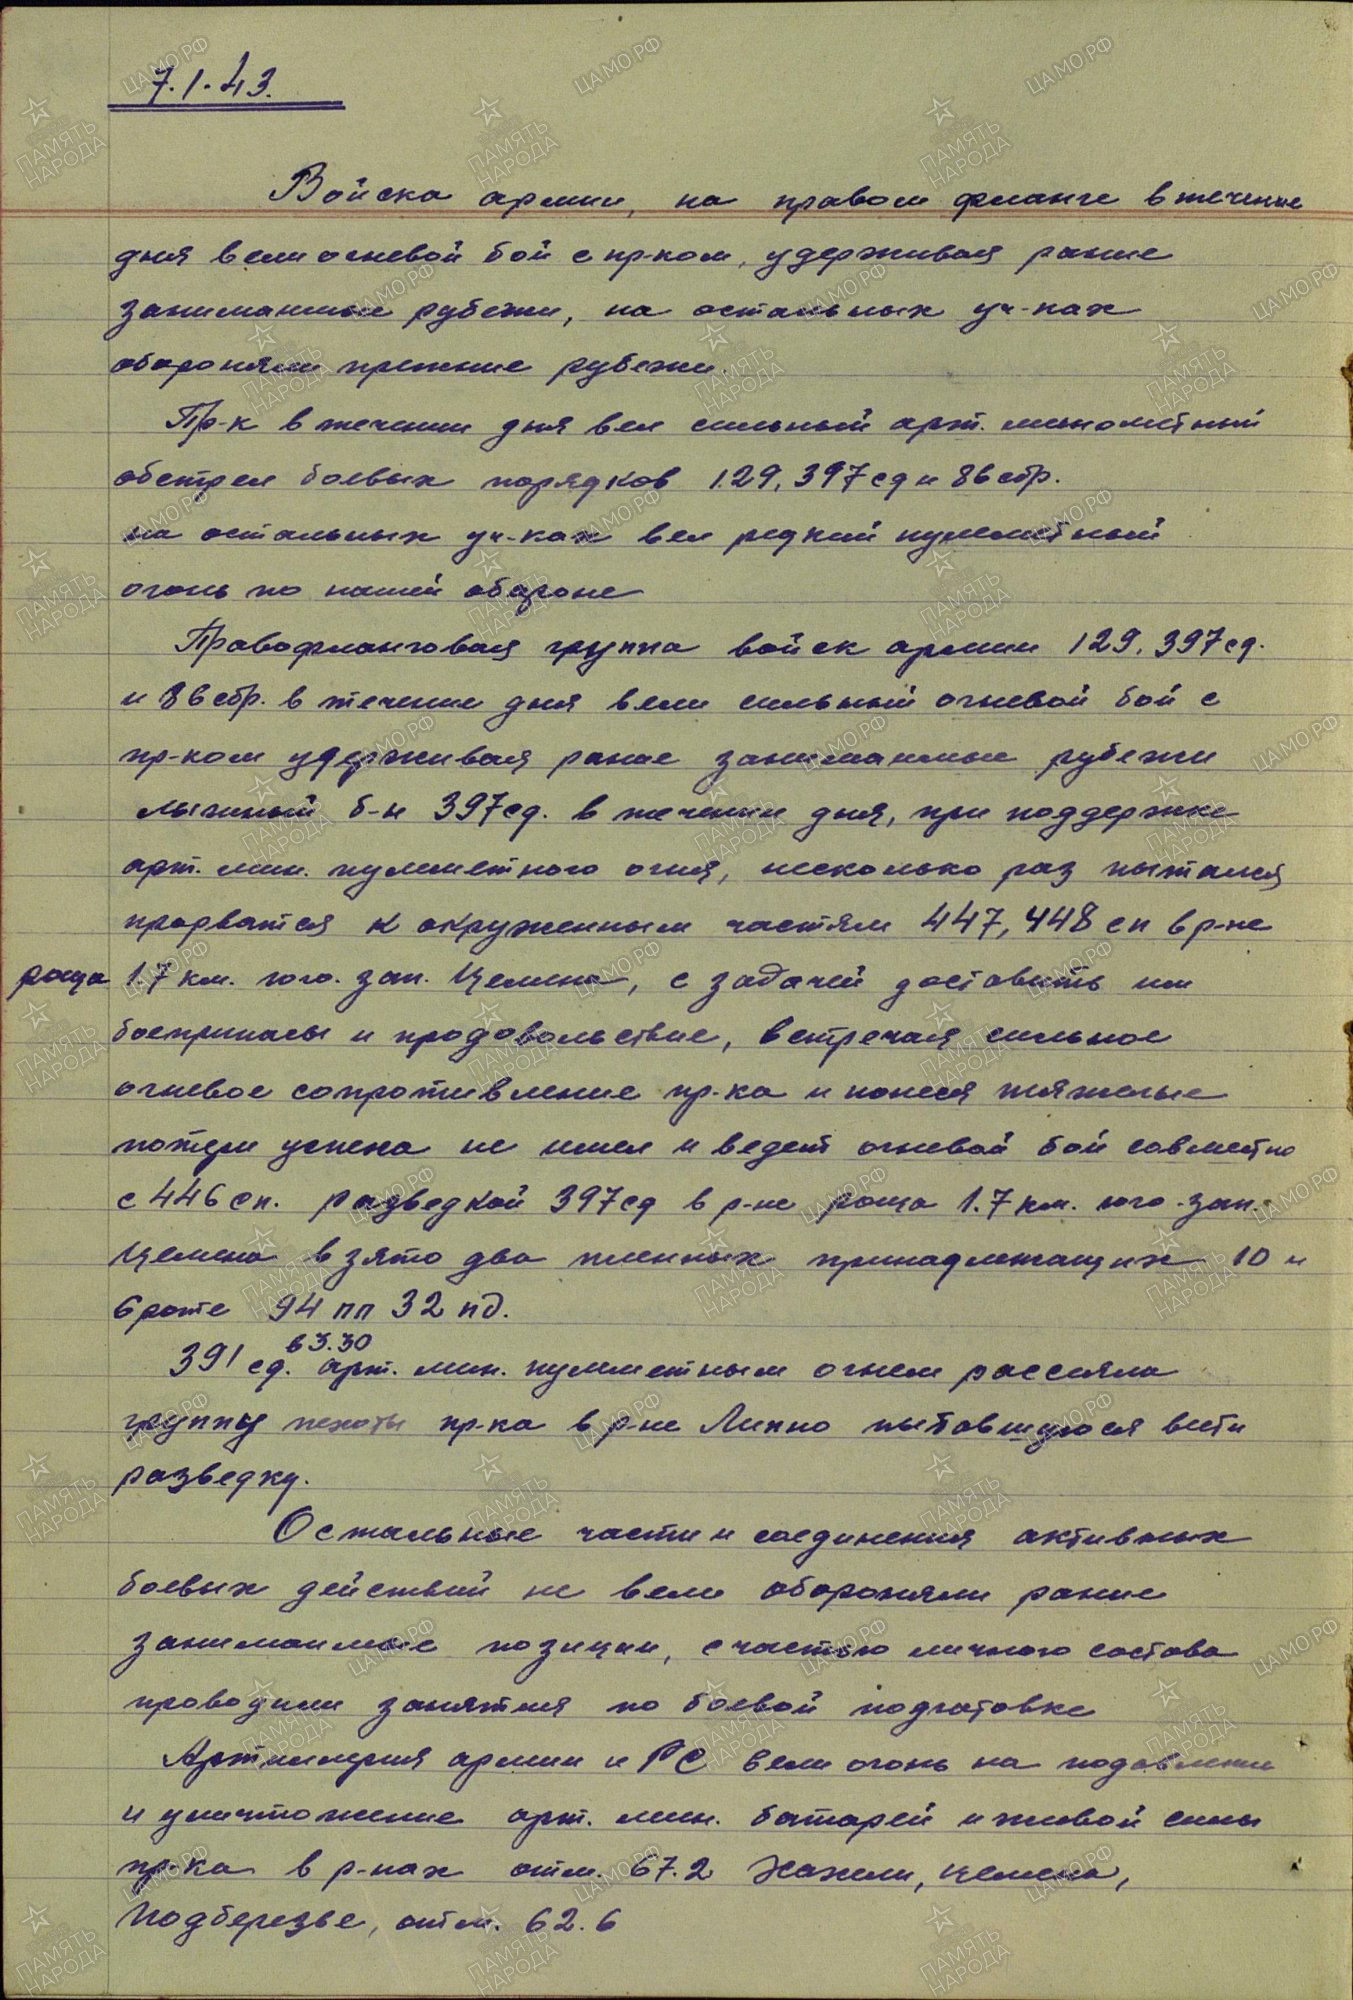 7.1.43.
Войска армии, на правом фланге в течение
дня вели огневой бой с пр-ком, удерживая ранее
занимаемые рубежи, на остальных уч-ках
обороняли прежние рубежи.
Пр-к в течении дня вел сильный арт. минометный
обстрел боевых порядков 129, 397 сд и 86 сбр.
на остальных уч-ках вел редкий пулеметный
огонь по нашей обороне
Правофланговая группа войск армии 129, 397 сд.
и 86 сбр. в течение дня вели сильный огневой бой с
пр-ком удерживая ранее занимаемые рубежи
лыжный б-н 397 сд. в течении дня, при поддержке
арт. мин. пулеметного огня, несколько раз пытался
прорватся к окруженным частям 447, 448 сп в р-не
роща 1.7 км. юго. зап. Цемена, с задачей доставить им
боеприпасы и продовольствие, встречая сильное
огневое сопротивление пр-ка и понеся тяжелые
потери успеха не имел и ведет огневой бой совместно
с 446 сп. разведкой 397 сд в р-не роща 1.7 км. юго-зап.
Цемена взято два пленных принадлежащих 10 и
6 роте 94 пп 32 пд.
391 сд. в 3.30 арт. мин. пулеметным огнем рассеяла
группу пехоты пр-ка в р-не Липно пытавшуюся вести
разведку.
Остальные части и соединения активных
боевых действий не вели обороняли ранее
занимаемые позиции, с частью личного состава
проводили занятия по боевой подготовке
Артиллерия армии и РС вели огонь на подавление
и уничтожение арт. мин. батарей и живой силы
пр-ка в р-нах отм. 67.2 Хахели, Цемена,
Подберезье, отм. 62.6